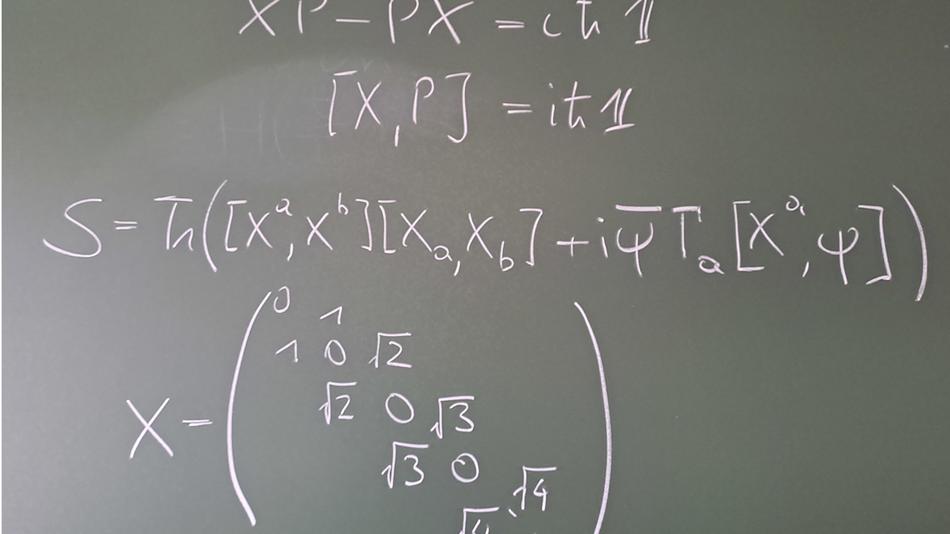 XP - PX = iħ 𝟙
[X, P] = iħ 𝟙
S = Tr([Xᵃ, Xᵇ][Xₐ, X_b] + iψ̄ Γₐ[Xᵃ, ψ])
0 1
1 0 √2
X = ( √2 0 √3 )
√3 0 √4
√4